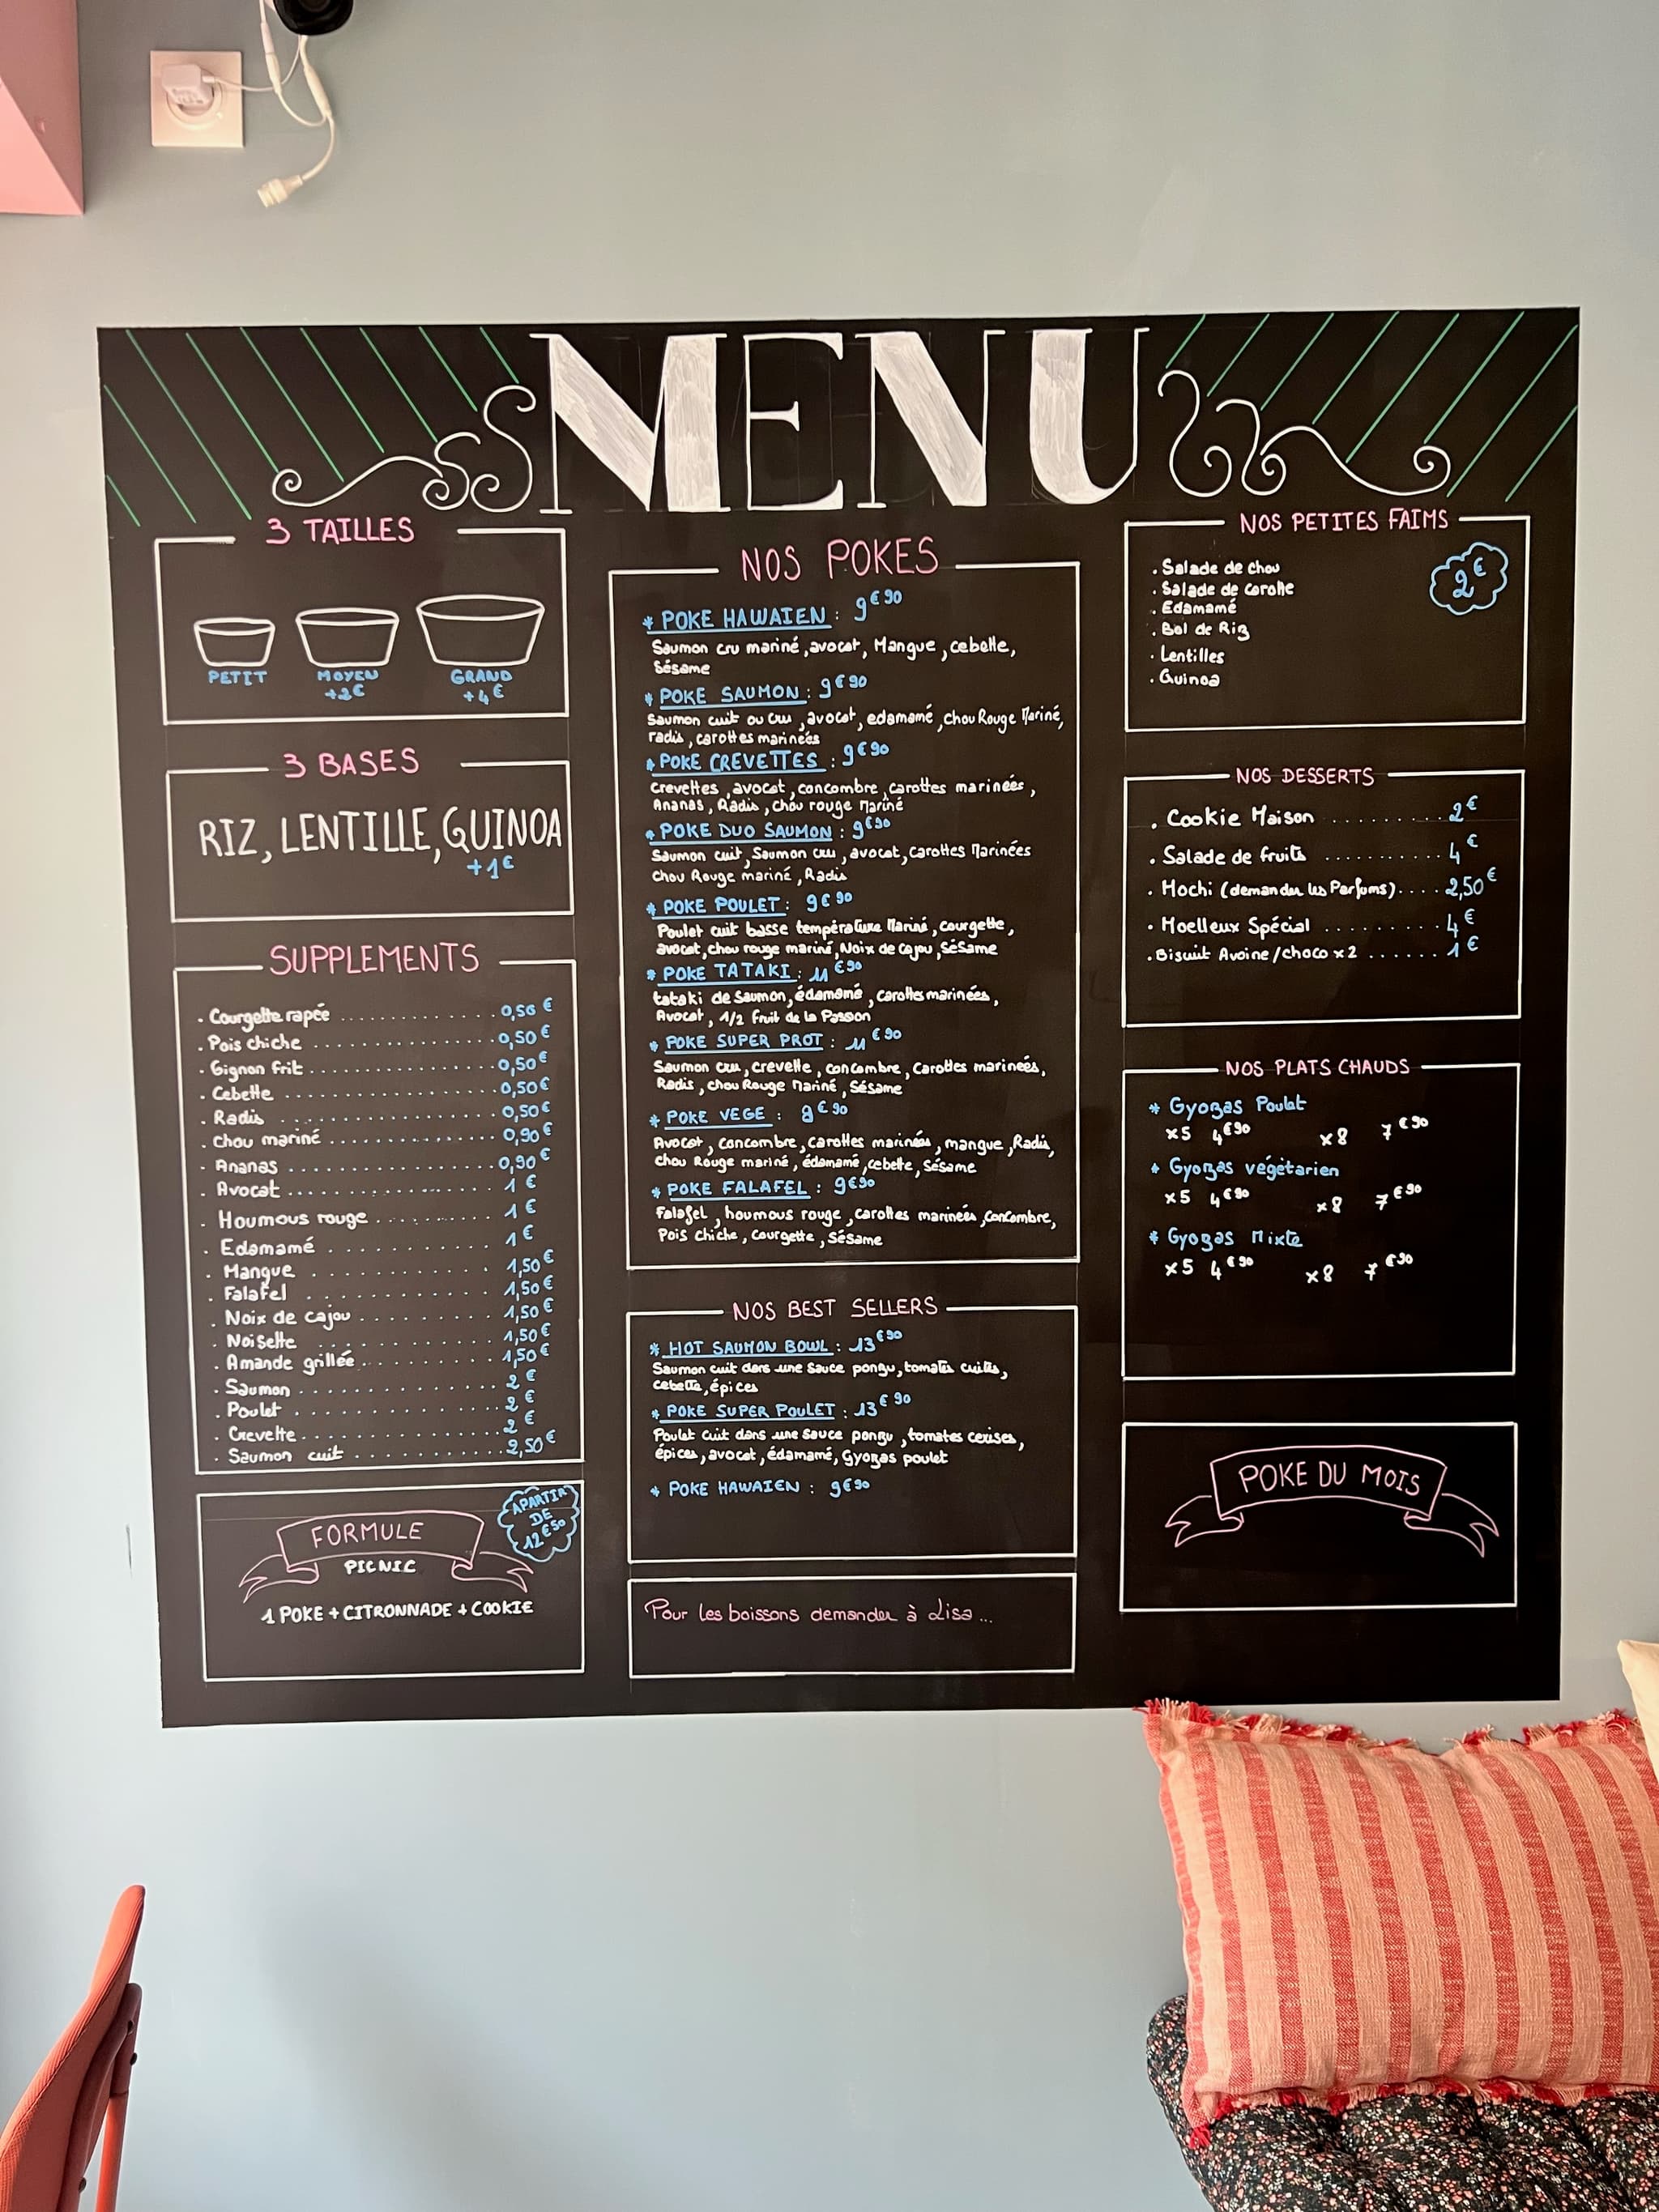 MENU
3 TAILLES
PETIT
MOYEN
+2€
GRAND
+4€
3 BASES
RIZ, LENTILLE, QUINOA
+1€
SUPPLEMENTS
. Courgette rapée ............... 0,50 €
. Pois chiche ............... 0,50 €
. Oignon frit ............... 0,50 €
. Cebette ............... 0,50 €
. Radis ............... 0,50 €
. chou mariné ............... 0,90 €
. Ananas ............... 0,90 €
. Avocat ............... 1 €
. Houmous rouge ............... 1 €
. Edamamé ............... 1 €
. Mangue ............... 1,50 €
. Falafel ............... 1,50 €
. Noix de cajou ............... 1,50 €
. Noisette ............... 1,50 €
. Amande grillée ............... 1,50 €
. Saumon ............... 2 €
. Poulet ............... 2 €
. Crevette ............... 2 €
. Saumon cuit ............... 2,50 €
APARTIR
DE
12€50
FORMULE
PICNIC
1 POKE + CITRONNADE + COOKIE
NOS POKES
* POKE HAWAIEN : 9€90
Saumon cru mariné, avocat, Mangue, cebette,
Sésame
* POKE SAUMON : 9€90
Saumon cuit ou cru, avocat, edamamé, chou Rouge Mariné,
radis, carottes marinées
* POKE CREVETTES : 9€90
Crevettes, avocat, concombre, carottes marinées,
Ananas, Radis, chou rouge Mariné
* POKE DUO SAUMON : 9€90
Saumon cuit, Saumon cru, avocat, carottes Marinées
Chou Rouge mariné, Radis
* POKE POULET : 9€90
Poulet cuit basse température Mariné, courgette,
avocat, chou rouge mariné, Noix de cajou, Sésame
* POKE TATAKI : 11€90
tataki de saumon, édamamé, carottes marinées,
Avocat, 1/2 fruit de la Passon
* POKE SUPER PROT : 11€90
Saumon cru, crevette, concombre, carottes marinées,
Radis, chou Rouge Mariné, Sésame
* POKE VEGE : 9€90
Avocat, concombre, carottes marinées, mangue, Radis,
Chou Rouge mariné, édamamé, cebette, Sésame
* POKE FALAFEL : 9€90
Falafel, houmous rouge, carottes marinées, concombre,
Pois chiche, courgette, Sésame
NOS BEST SELLERS
* HOT SAUMON BOWL : 13€90
Saumon cuit dans une sauce ponzu, tomates cuites,
cebette, épices
* POKE SUPER POULET : 13€90
Poulet cuit dans une sauce ponzu, tomates cerises,
épices, avocat, édamamé, Gyozas poulet
* POKE HAWAIEN : 9€90
Pour les boissons demander à Lisa...
NOS PETITES FAIMS
2€
. Salade de chou
. Salade de carotte
. Edamamé
. Bol de Riz
. Lentilles
. Quinoa
NOS DESSERTS
. Cookie Maison .......... 2€
. Salade de fruits .......... 4€
. Mochi (demander les Parfums).... 2,50€
. Moelleux Spécial .......... 4€
. Biscuit Avoine/choco x2 ...... 1€
NOS PLATS CHAUDS
* Gyozas Poulet
x5 4€90 x8 7€90
* Gyozas végétarien
x5 4€90 x8 7€90
* Gyozas Mixte
x5 4€90 x8 7€90
POKE DU MOIS